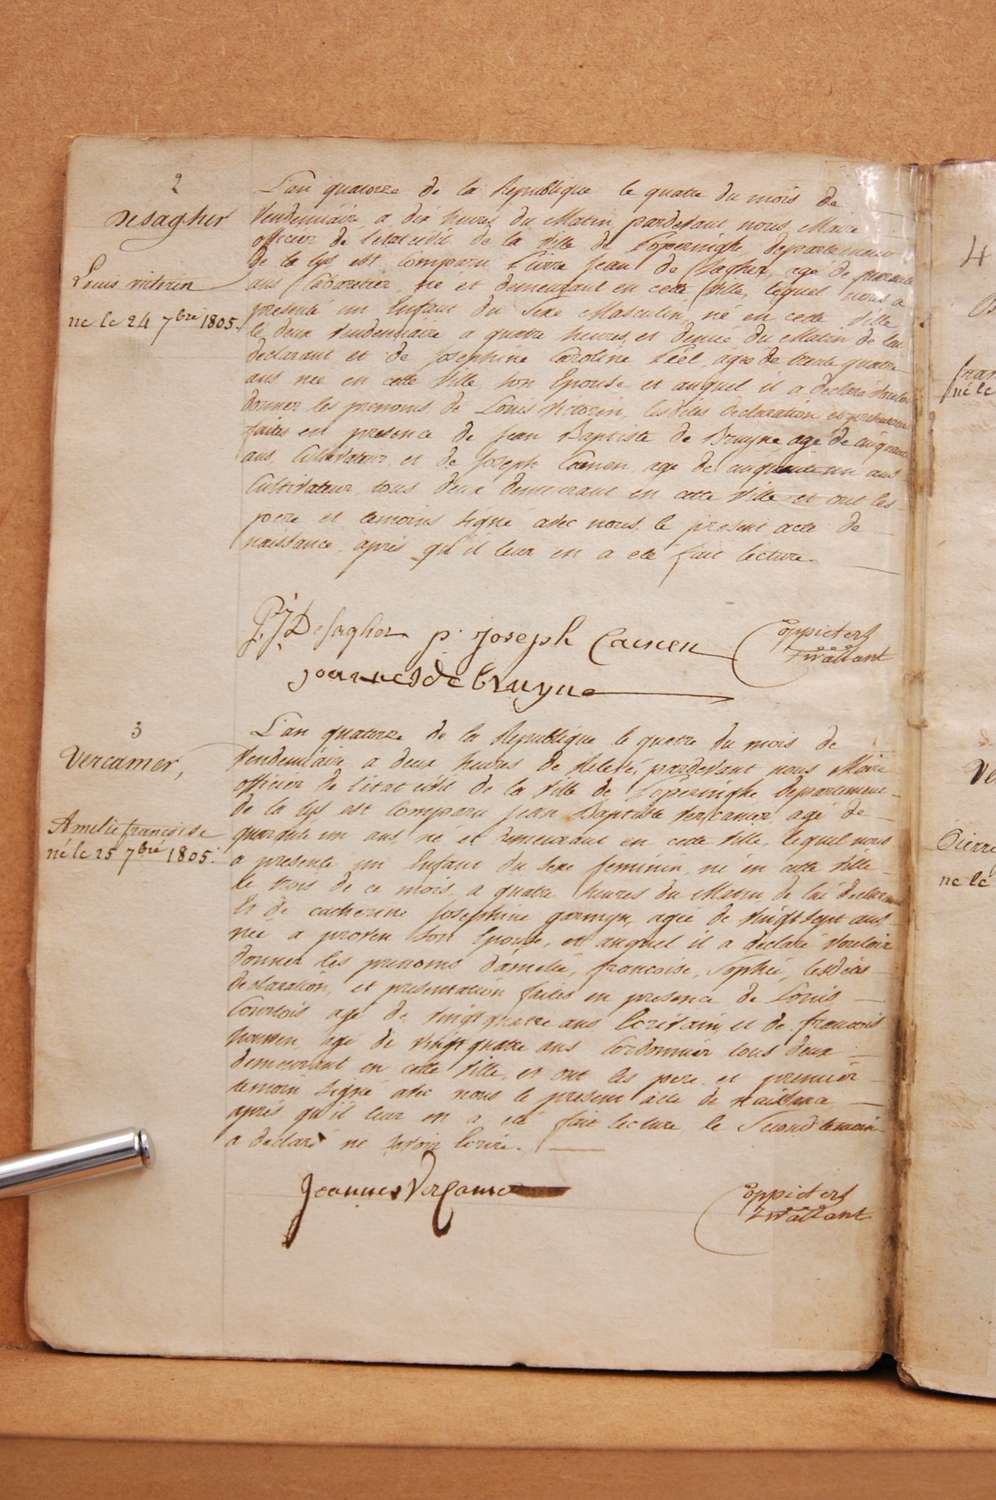 2
Desagher
Louis victorin
né le 24 7bre 1805.
L'an quatorze de la République le quatre du mois de
Vendemiaire a dix heures du Matin, pardevant nous Maire
officier de l'état civil de la Ville de Poperinghe departement
de la Lys est comparu Pierre Jean de Sagher, agé de quarante
ans Cabaretier né et demeurant en cette Ville, lequel nous a
presenté un Enfant du Sexe Masculin, né en cette Ville
le deux Vendemiaire a quatre heures et demie du Matin de lui
declarant et de Josephine Caroline agée de trente quatre
ans née en cette Ville, son Epouse et auquel il a declaré vouloir
donner les prenoms de Louis Victorin, lesdites declaration et presentation
faites en presence de Jean Baptiste de Bruyne agé de cinquante
ans, Cultivateur et de Joseph Caenen, agé de ans
Cultivateur tous deux demeurant en cette Ville et ont les
pere et temoins signé avec nous le present acte de
naissance, après qu'il leur en a eté fait lecture.
P.J. DeSagher p. Joseph Caenen Coppieters
joannes de bruyne T'Wallant
3
Vercamer,
Amelie francoise
né le 25 7bre 1805.
L'an quatorze de la République le quatre du mois de
Vendemiaire, a deux heures de Relevé, pardevant nous Maire
officier de l'état civil de la Ville de Poperinghe departement
de la Lys est comparu Jean Baptiste Vercamer agé de
quarante un ans, né et demeurant en cette Ville, lequel nous
a presenté un Enfant du Sexe feminin, né en cette Ville
le trois de ce mois, a quatre heures du Matin, de lui declarant
Et de catherine Josephine gormyn, agée de vingt sept ans
née a proven son Epouse, et auquel il a declaré vouloir
donner les prenoms d'amelie, francoise, Sophie, lesdites
declaration, et presentation faites en presence de Louis
Courtois agé de vingt quatre ans Ecrivain, et de francois
agé de vingt quatre ans Cordonnier tous deux
demeurant en cette Ville, et ont les pere et premier
temoin signé avec nous le present acte de naissance
après qu'il leur en a eté fait lecture le Second temoin
a declaré ne savoir Ecrire.
Joannes Vercame Coppieters
T'Wallant
4
né le
né le